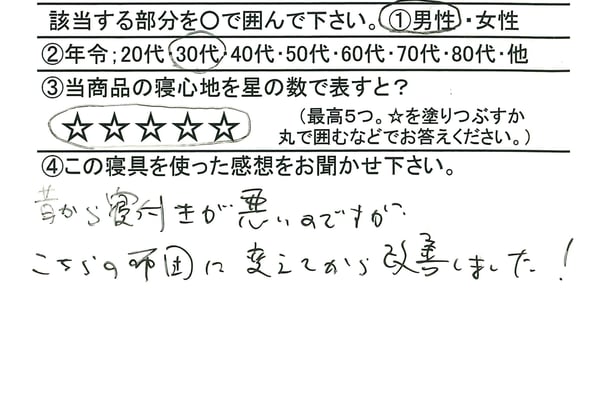 該当する部分を〇で囲んで下さい。①男性・女性
②年令;20代・30代・40代・50代・60代・70代・80代・他
③当商品の寝心地を星の数で表すと？
☆☆☆☆☆
（最高5つ。☆を塗りつぶすか
丸で囲むなどでお答えください。）
④この寝具を使った感想をお聞かせ下さい。
昔から寝付きが悪いのですが、
こちらの布団に変えてから改善しました！